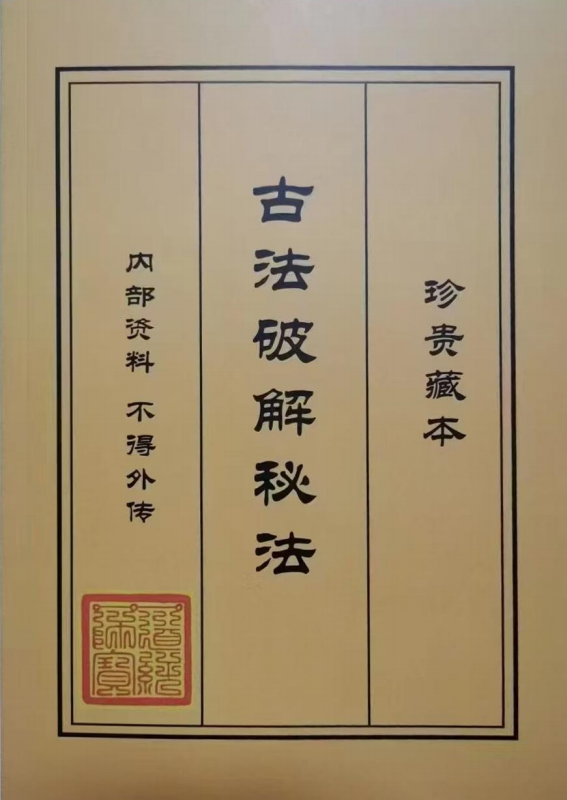 珍贵藏本
古法破解秘法
内部资料 不得外传
道經師寶